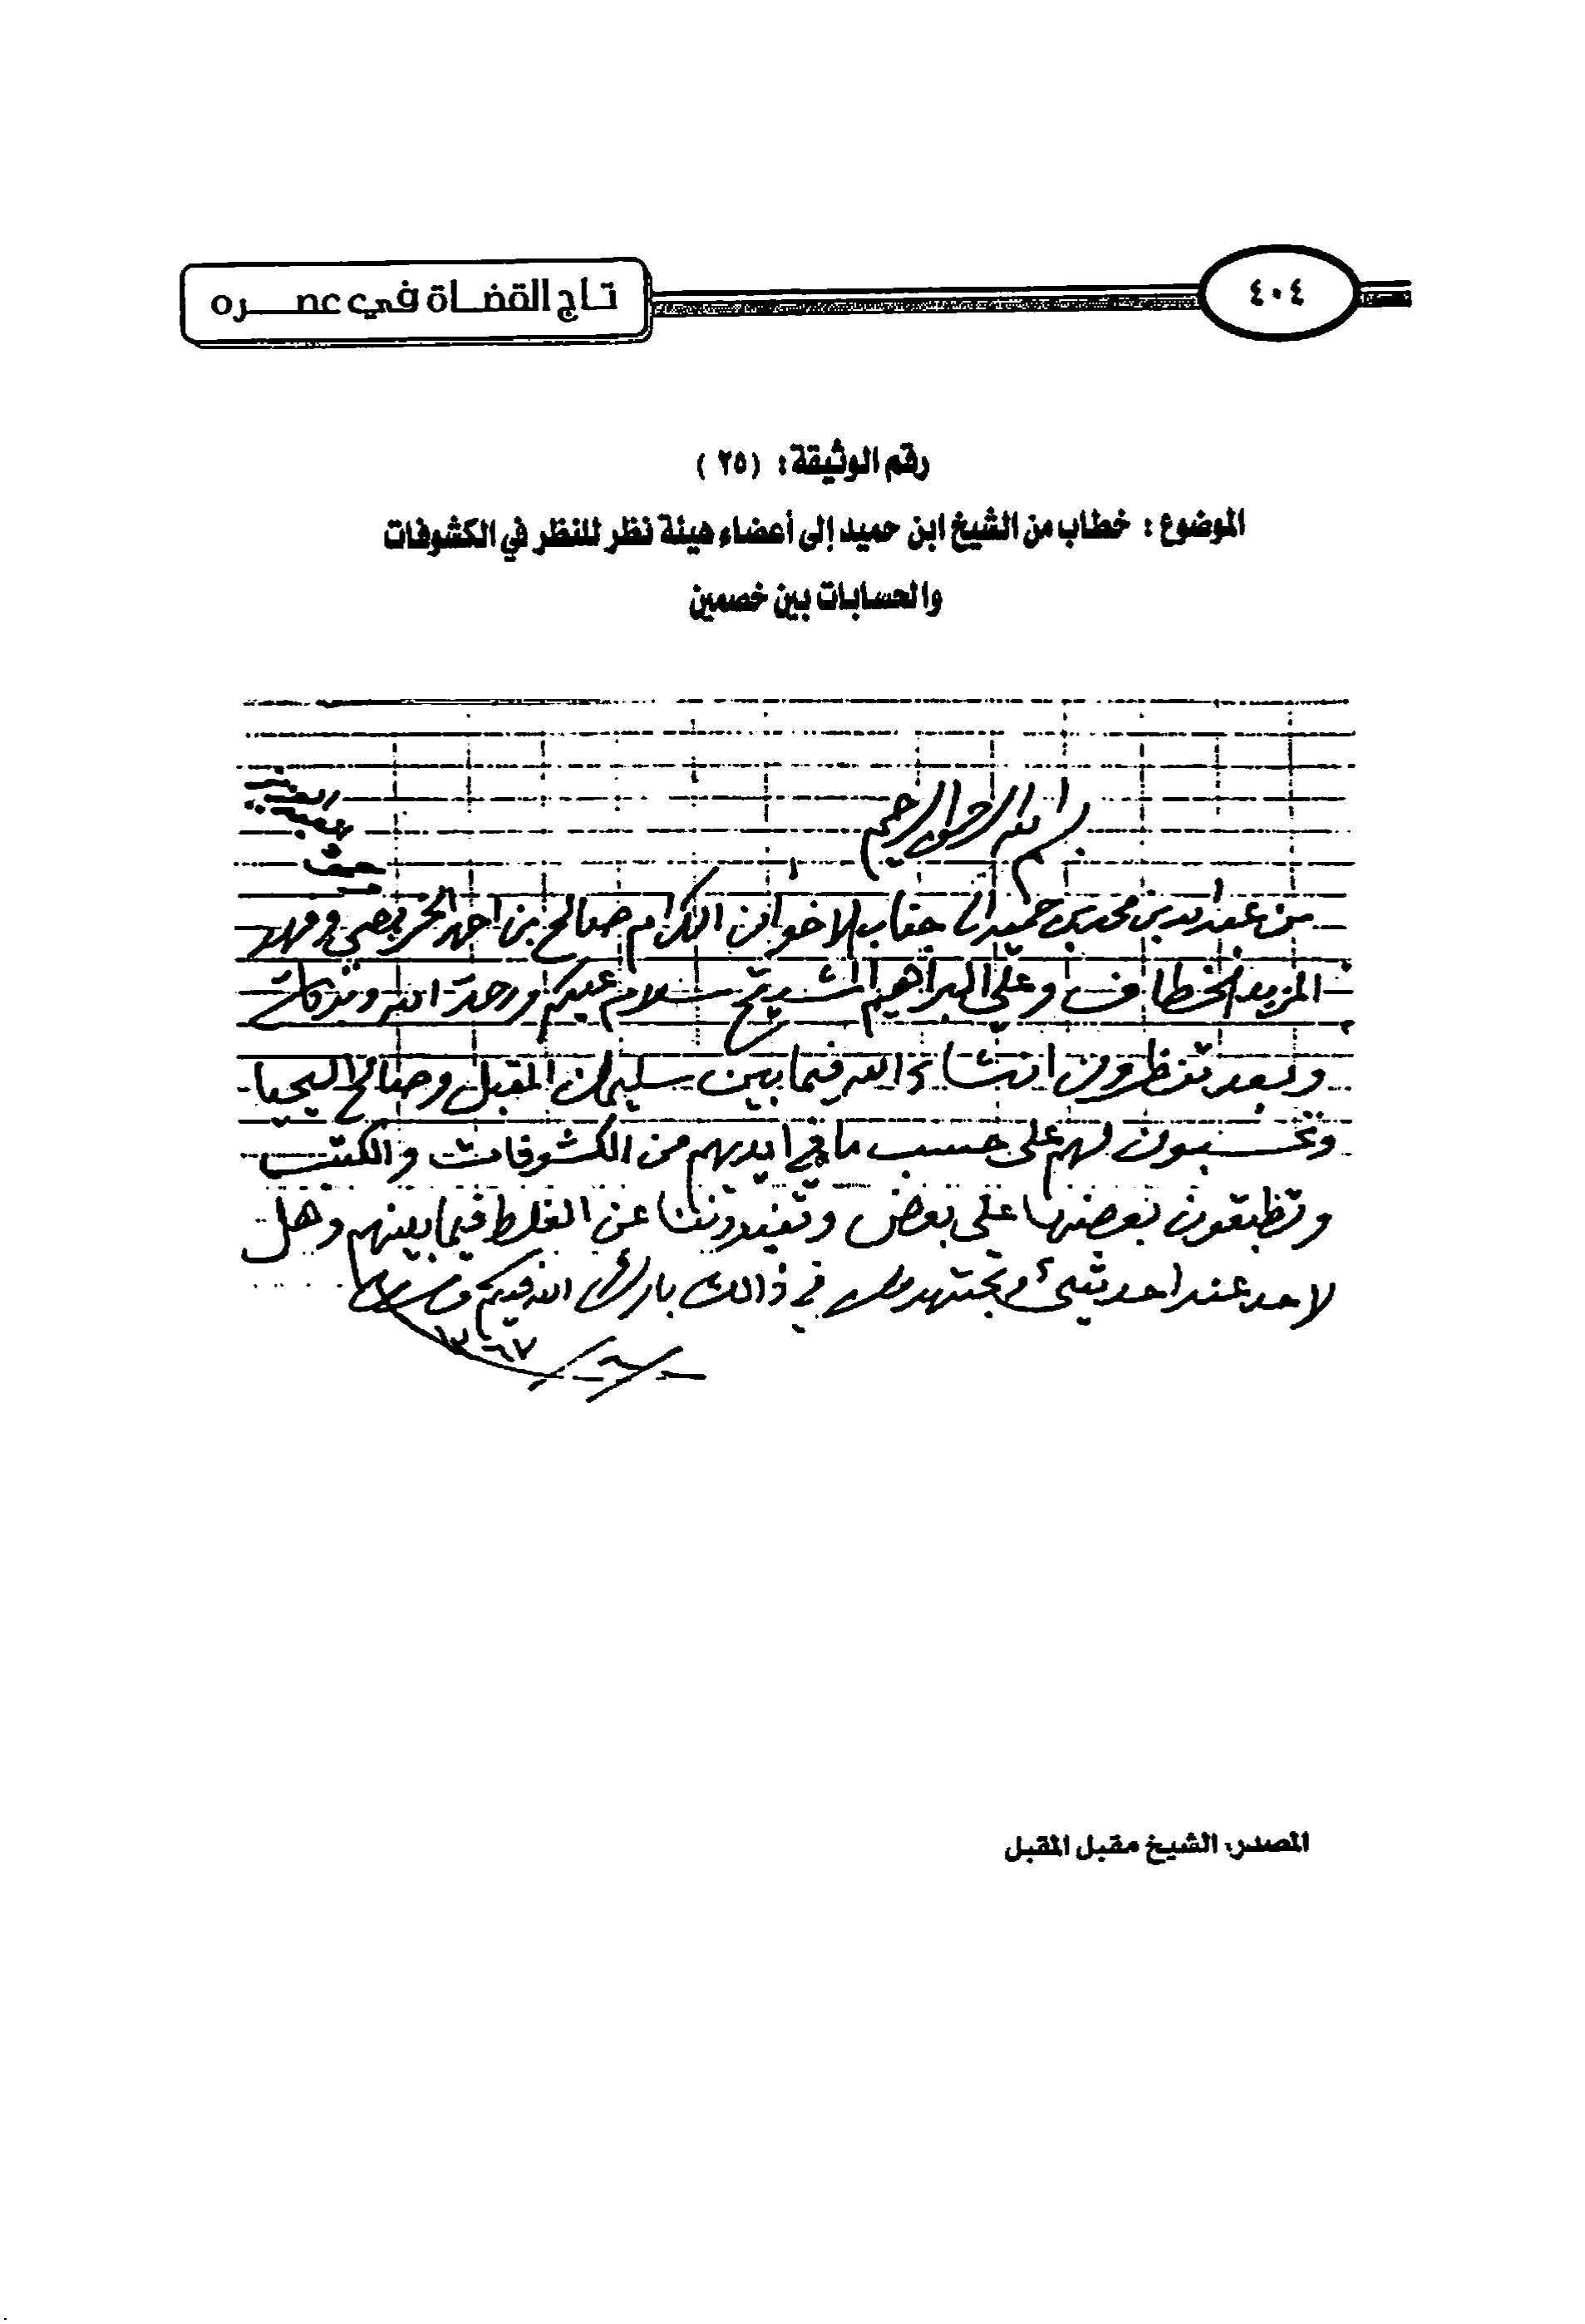 تاج القضاة في عصره
٤٠٤
رقم الوثيقة: (٢٥)
الموضوع: خطاب من الشيخ ابن حميد إلى أعضاء هيئة نظر للنظر في الكشوفات
والحسابات بين خصمين
بسم الله الرحمن الرحيم
من عبد الله بن محمد بن حميد الى جناب الاخوان الكرام صالح بن احمد الخريصي وفهد
المزيد الخطاف وعلي البراهيم المشيقح سلام عليكم ورحمة الله وبركاته
وبعد تنظرون انشاء الله فيما بين سليمان المقبل وصالح اليحيا
وتحسبون لهم على حسب ما في ايديهم من الكشوفات والكتب
وتطبقون بعضها على بعض وتفيدوننا عن الغلط فيما بينهم وهل
لاحد عند احد شيئ وتجتهدون في ذالك بارك الله فيكم والسلام
١٣٦٧
المصدر: الشيخ مقبل المقبل